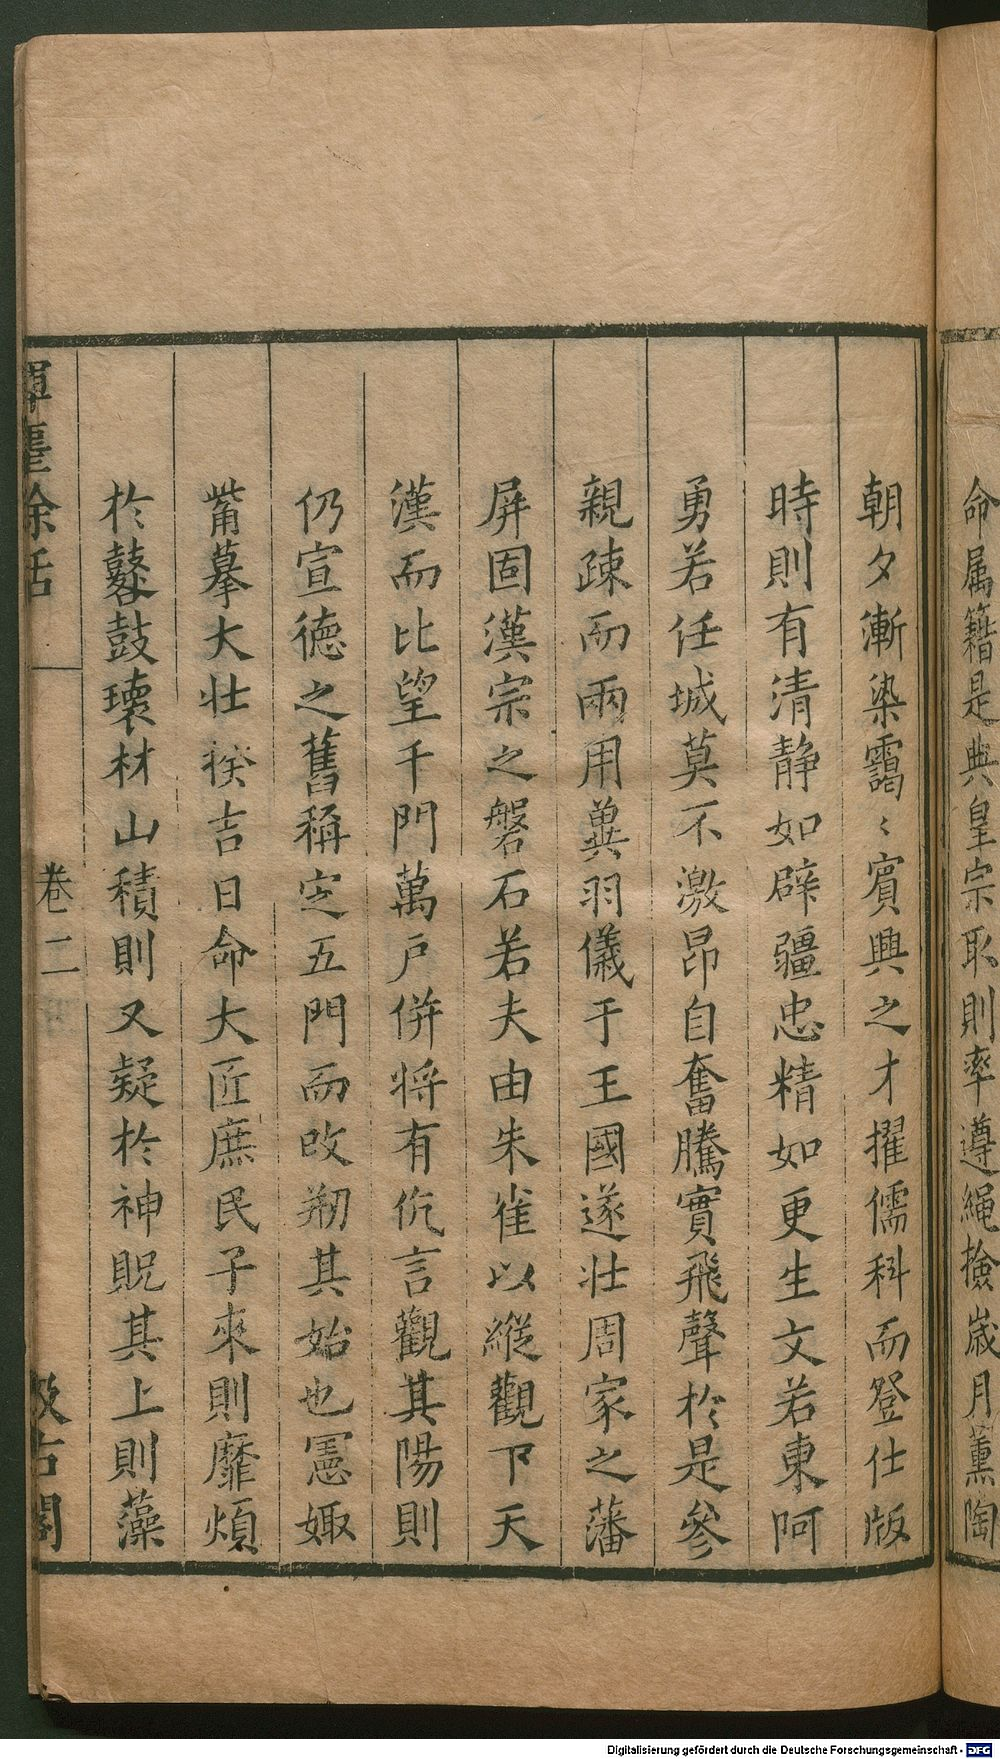 命属籍是典皇宗取則率遵繩撿歳月薰陶
朝夕漸染靄〻賓興之才擢儒科而登仕版
時則有清静如辟疆忠精如更生文若東阿
勇若任城莫不激昂自奮騰實飛聲於是參
親疎而兩用冀羽儀于王國遂壮周家之藩
屏固漢宗之磐石若夫由朱雀以縱觀下天
漢而比望千門萬戸併将有伉言觀其陽則
仍宣徳之舊稱定五門而改剏其始也憲娵
觜摹大壮揆吉日命大匠庶民子來則靡煩
於鼛鼓瓌材山積則又疑於神貺其上則藻
揮麈餘話
卷二
汲古閣
Digitalisierung gefördert durch die Deutsche Forschungsgemeinschaft - DFG